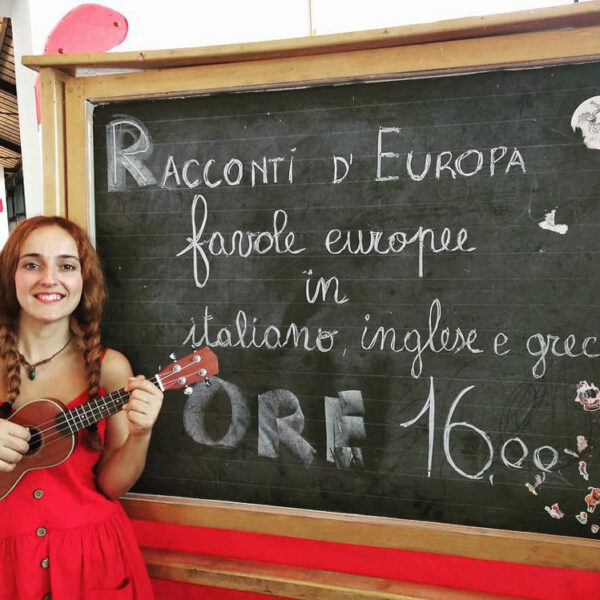 RACCONTI D' EUROPA
favole europee
in
italiano, inglese e grec
ORE 16,00